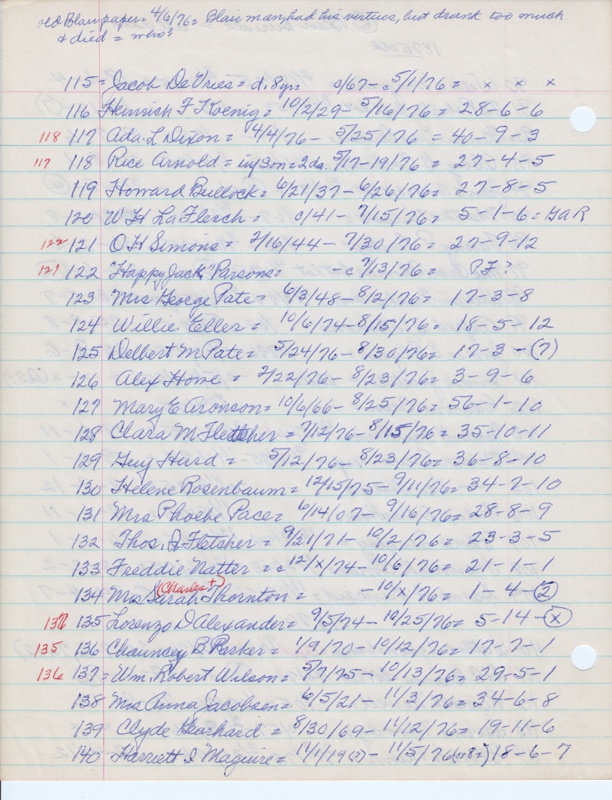 old Blair paper = 4/6/76 = Blair man, had his virtues, but drank too much
& died =
115 = Jacob DeVries = d. 8yr c/67 - c 5/1/76 = x x x
116 Heinrich F Koenig = 10/2/29 - 5/16/76 = 28-6-6
118 117 Ada L Dixon = 4/4/76 - 5/25/76 = 40-9-3
117 118 Rice Arnold = inf son = 2da. 5/17-19/76 = 27-4-5
119 Howard Bullock = 6/21/37 - 6/26/76 = 27-8-5
120 W H LaFlesh = c/41 - 7/15/76 = 5-1-6 = GAR
122 121 O H Simons = 2/16/44 - 7/30/76 = 27-9-12
121 122 "Happy Jack" Parsons = - c 7/13/76 = P.F ?
123 Mrs George Pate = 6/3/48 - 8/2/76 = 17-3-8
124 Willie Eller = 10/6/74 - 8/15/76 = 18-5-12
125 Delbert M Pate = 5/24/76 - 8/30/76 = 17-3-(7)
126 Alex Home = 2/22/76 - 8/23/76 = 3-9-6
127 Mary E Aronson = 10/6/66 - 8/25/76 = 56-1-10
128 Clara M Fletcher = 7/12/76 - 8/15/76 = 35-10-11
129 Guy Hurd = 5/12/76 - 8/23/76 = 36-8-10
130 Helene Rosenbaum = 12/15/75 - 9/11/76 = 34-7-10
131 Mrs Phoebe Pace = 6/14/07 - 9/16/76 = 28-8-9
132 Thos. J Fletcher = 9/21/71 - 10/2/76 = 23-3-5
133 Freddie Natter = c 12/x/74 - 10/6/76 = 21-1-1
134 Mrs (Charles +) Sarah Thornton = - 10/x/76 = 1-4-(2)
137 135 Lorenzo D Alexander = 9/5/74 - 10/25/76 = 5-14-(x)
135 136 Chauncey B Parker = 1/9/70 - 10/12/76 = 17-7-1
136 137 = Wm. Robert Wilson = 5/7/75 - 10/13/76 = 29-5-1
138 Mrs Anna Jacobsen = 6/5/21 - 11/3/76 = 34-6-8
139 Clyde Gearhard = 8/30/69 - 11/12/76 = 19-11-6
140 Harriett I Maguire = 11/1/19(?) - 11/5/76 (or 8 =) 18-6-7